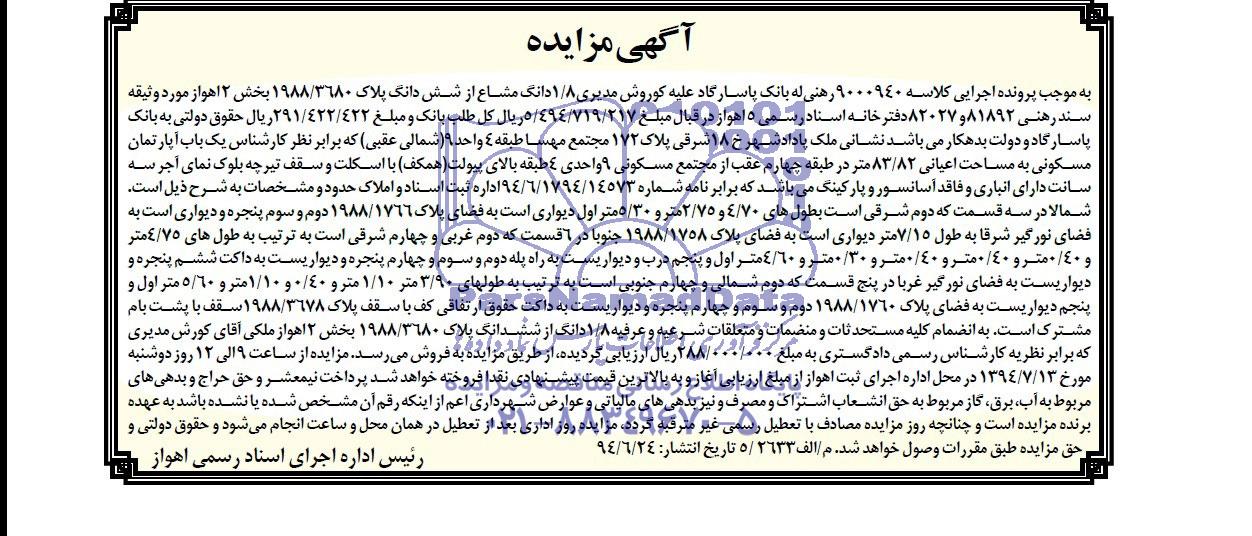 آگهی مزایده
به موجب پرونده اجرایی کلاسه ۹۰۰۰۹۴۰ رهنی له بانک پاسارگاد علیه کوروش مدیری ۱/۸دانگ مشاع از شش دانگ پلاک ۱۹۸۸/۳۶۸۰ بخش ۲اهواز مورد وثیقه
سند رهنی ۸۱۸۹۲و ۸۲۰۲۷دفترخانه اسناد رسمی ۵اهواز در قبال مبلغ ۵/۴۹۴/۷۱۹/۲۱۷ریال کل طلب بانک و مبلغ ۲۹۱/۴۲۲/۴۲۲ریال حقوق دولتی به بانک
پاسارگاد و دولت بدهکار می باشد نشانی ملک پادادشهر خ ۱۸شرقی پلاک ۱۷۲ مجتمع مهسا طبقه ۴واحد ۹(شمالی عقبی) که برابر نظر کارشناس یک باب آپارتمان
مسکونی به مساحت اعیانی ۸۳/۸۲متر در طبقه چهارم عقب از مجتمع مسکونی ۹واحدی ۴طبقه بالای پیولت(همکف) با اسکلت و سقف تیرچه بلوک نمای آجر سه
سانت دارای انباری و فاقد آسانسور و پارکینگ می باشد که برابر نامه شماره ۹۴/۶/۱۷۹۴/۱۴۵۷۳اداره ثبت اسناد و املاک حدود و مشخصات به شرح ذیل است.
شمالا در سه قسمت که دوم شرقی است بطول های ۴/۷۰ و ۲/۷۵متر و ۵/۳۰متر اول دیواری است به فضای پلاک ۱۹۸۸/۱۷۶۶ دوم و سوم پنجره و دیواری است به
فضای نورگیر شرقا به طول ۷/۱۵متر دیواری است به فضای پلاک ۱۹۸۸/۱۷۵۸ جنوبا در ۶قسمت که دوم غربی و چهارم شرقی است به ترتیب به طول های ۴/۷۵متر
و ۰/۴۰متر و ۰/۴۰متر و ۰/۴۰متر و ۰/۳۰متر و ۴/۶۰متر اول و پنجم درب و دیواریست به راه پله دوم و سوم و چهارم پنجره و دیواریست به داکت ششم پنجره و
دیواریست به فضای نورگیر غربا در پنج قسمت که دوم شمالی و چهارم جنوبی است به ترتیب به طولهای ۳/۹۰متر ۱/۱۰متر و ۰/۴۰ و ۱/۱۰متر و ۵/۶۰متر اول و
پنجم دیواریست به فضای پلاک ۱۹۸۸/۱۷۶۰ دوم و سوم و چهارم پنجره و دیواریست به داکت حقوق ارتفاقی کف با سقف پلاک ۱۹۸۸/۳۶۷۸سقف با پشت بام
مشترک است. به انضمام کلیه مستحدثات و منضمات و متعلقات شرعیه و عرفیه ۱/۸دانگ از ششدانگ پلاک ۱۹۸۸/۳۶۸۰ بخش ۲اهواز ملکی آقای کورش مدیری
که برابر نظریه کارشناس رسمی دادگستری به مبلغ ۲۸۸/۰۰۰/۰۰۰ریال ارزیابی گردیده، از طریق مزایده به فروش می رسد. مزایده از ساعت ۹الی ۱۲ روز دوشنبه
مورخ ۱۳۹۴/۷/۱۳ در محل اداره اجرای ثبت اهواز از مبلغ ارزیابی آغاز و به بالاترین قیمت پیشنهادی نقدا فروخته خواهد شد پرداخت نیمعشر و حق حراج و بدهی های
مربوط به آب، برق، گاز مربوط به حق انشعاب اشتراک و مصرف و نیز بدهی های مالیاتی و عوارض شهرداری اعم از اینکه رقم آن مشخص شده یا نشده باشد به عهده
برنده مزایده است و چنانچه روز مزایده مصادف با تعطیل رسمی غیر مترقبه گردد. مزایده روز اداری بعد از تعطیل در همان محل و ساعت انجام می‌شود و حقوق دولتی و
حق مزایده طبق مقررات وصول خواهد شد. م/الف۵/۲۶۳۳ تاریخ انتشار: ۹۴/۶/۲۴
رئیس اداره اجرای اسناد رسمی اهواز
ParsNamadData
پایگاه اطلاع رسانی مناقصه و مزایده
۰۲۱-۸۸۳۴۹۶۷۰-۵